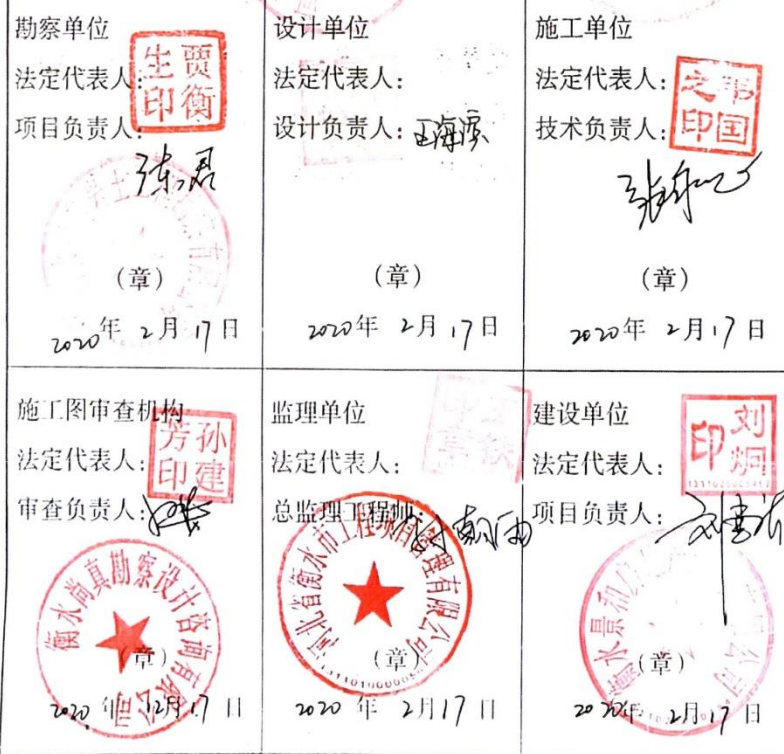 勘察单位
法定代表人：
贾衡生印
项目负责人：
（章）
2020年 2月 17日
设计单位
法定代表人：
设计负责人：
（章）
2020年 2月 17日
施工单位
法定代表人：
韦国之印
技术负责人：
（章）
2020年 2月 17日
施工图审查机构
法定代表人：
孙建芳印
审查负责人：
衡水尚真勘察设计咨询有限公司
（章）
2020年 月17日
监理单位
法定代表人：
总监理工程师：
河北省衡水市工程项目管理有限公司
（章）
2020年 2月17日
建设单位
法定代表人：
刘炯印
项目负责人：
（章）
2020年 2月17日